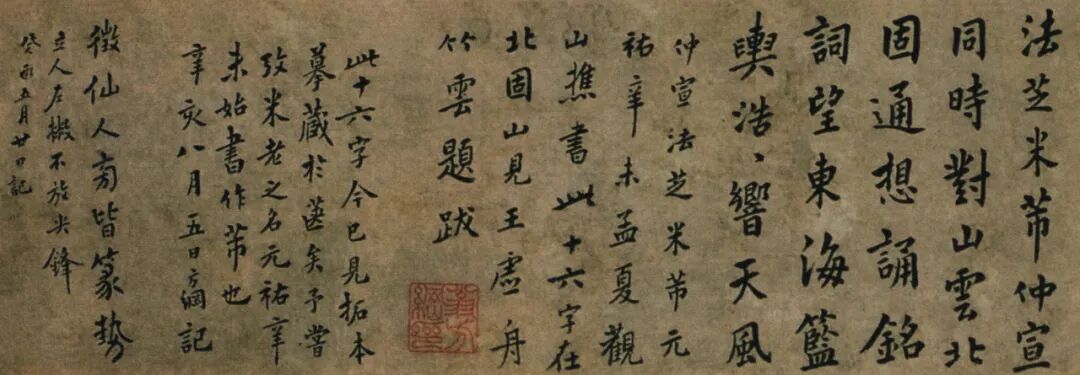 法芝米芾仲宣
同時對山雲北
固通想誦銘
詞望東海籃
輿浩、響天風
仲宣法芝米芾元
祐辛未孟夏觀
山樵書此十六字在
北固山見王虛舟
竹雲題跋
此十六字今已見拓本
摹藏於篋矣予嘗
攷米老之名元祐辛
未始書作芾也
辛亥八月五日方綱記
徵仙人旁皆篆勢
立人左撇不放尖鋒
癸丑五月廿日記
翁方綱印